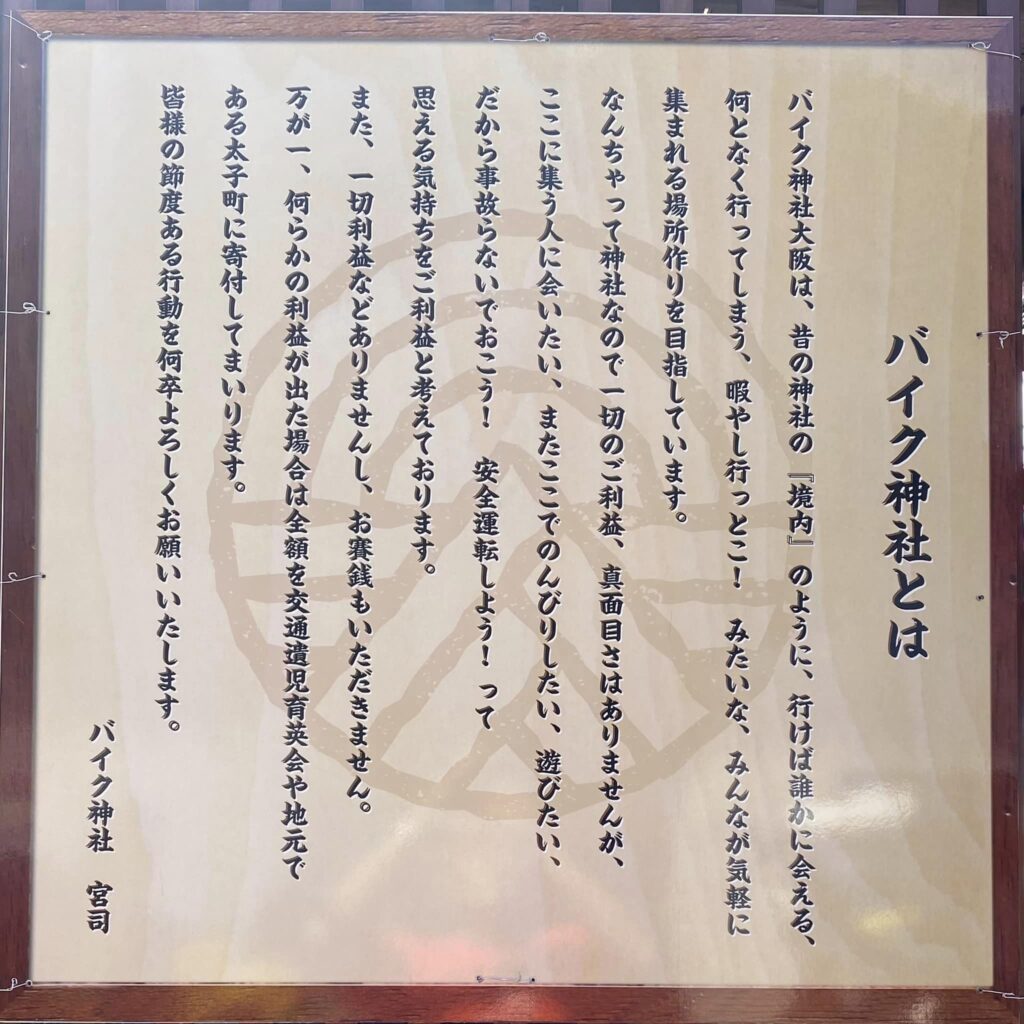 バイク神社とは
バイク神社大阪は、昔の神社の『境内』のように、行けば誰かに会える、
何となく行ってしまう、暇やし行っとこ！　みたいな、みんなが気軽に
集まれる場所作りを目指しています。
なんちゃって神社なので一切のご利益、真面目さはありませんが、
ここに集う人に会いたい、またここでのんびりしたい、遊びたい、
だから事故らないでおこう！　安全運転しよう！って
思える気持ちをご利益と考えております。
また、一切利益などありませんし、お賽銭もいただきません。
万が一、何らかの利益が出た場合は全額を交通遺児育英会や地元で
ある太子町に寄付してまいります。
皆様の節度ある行動を何卒よろしくお願いいたします。
バイク神社　宮司